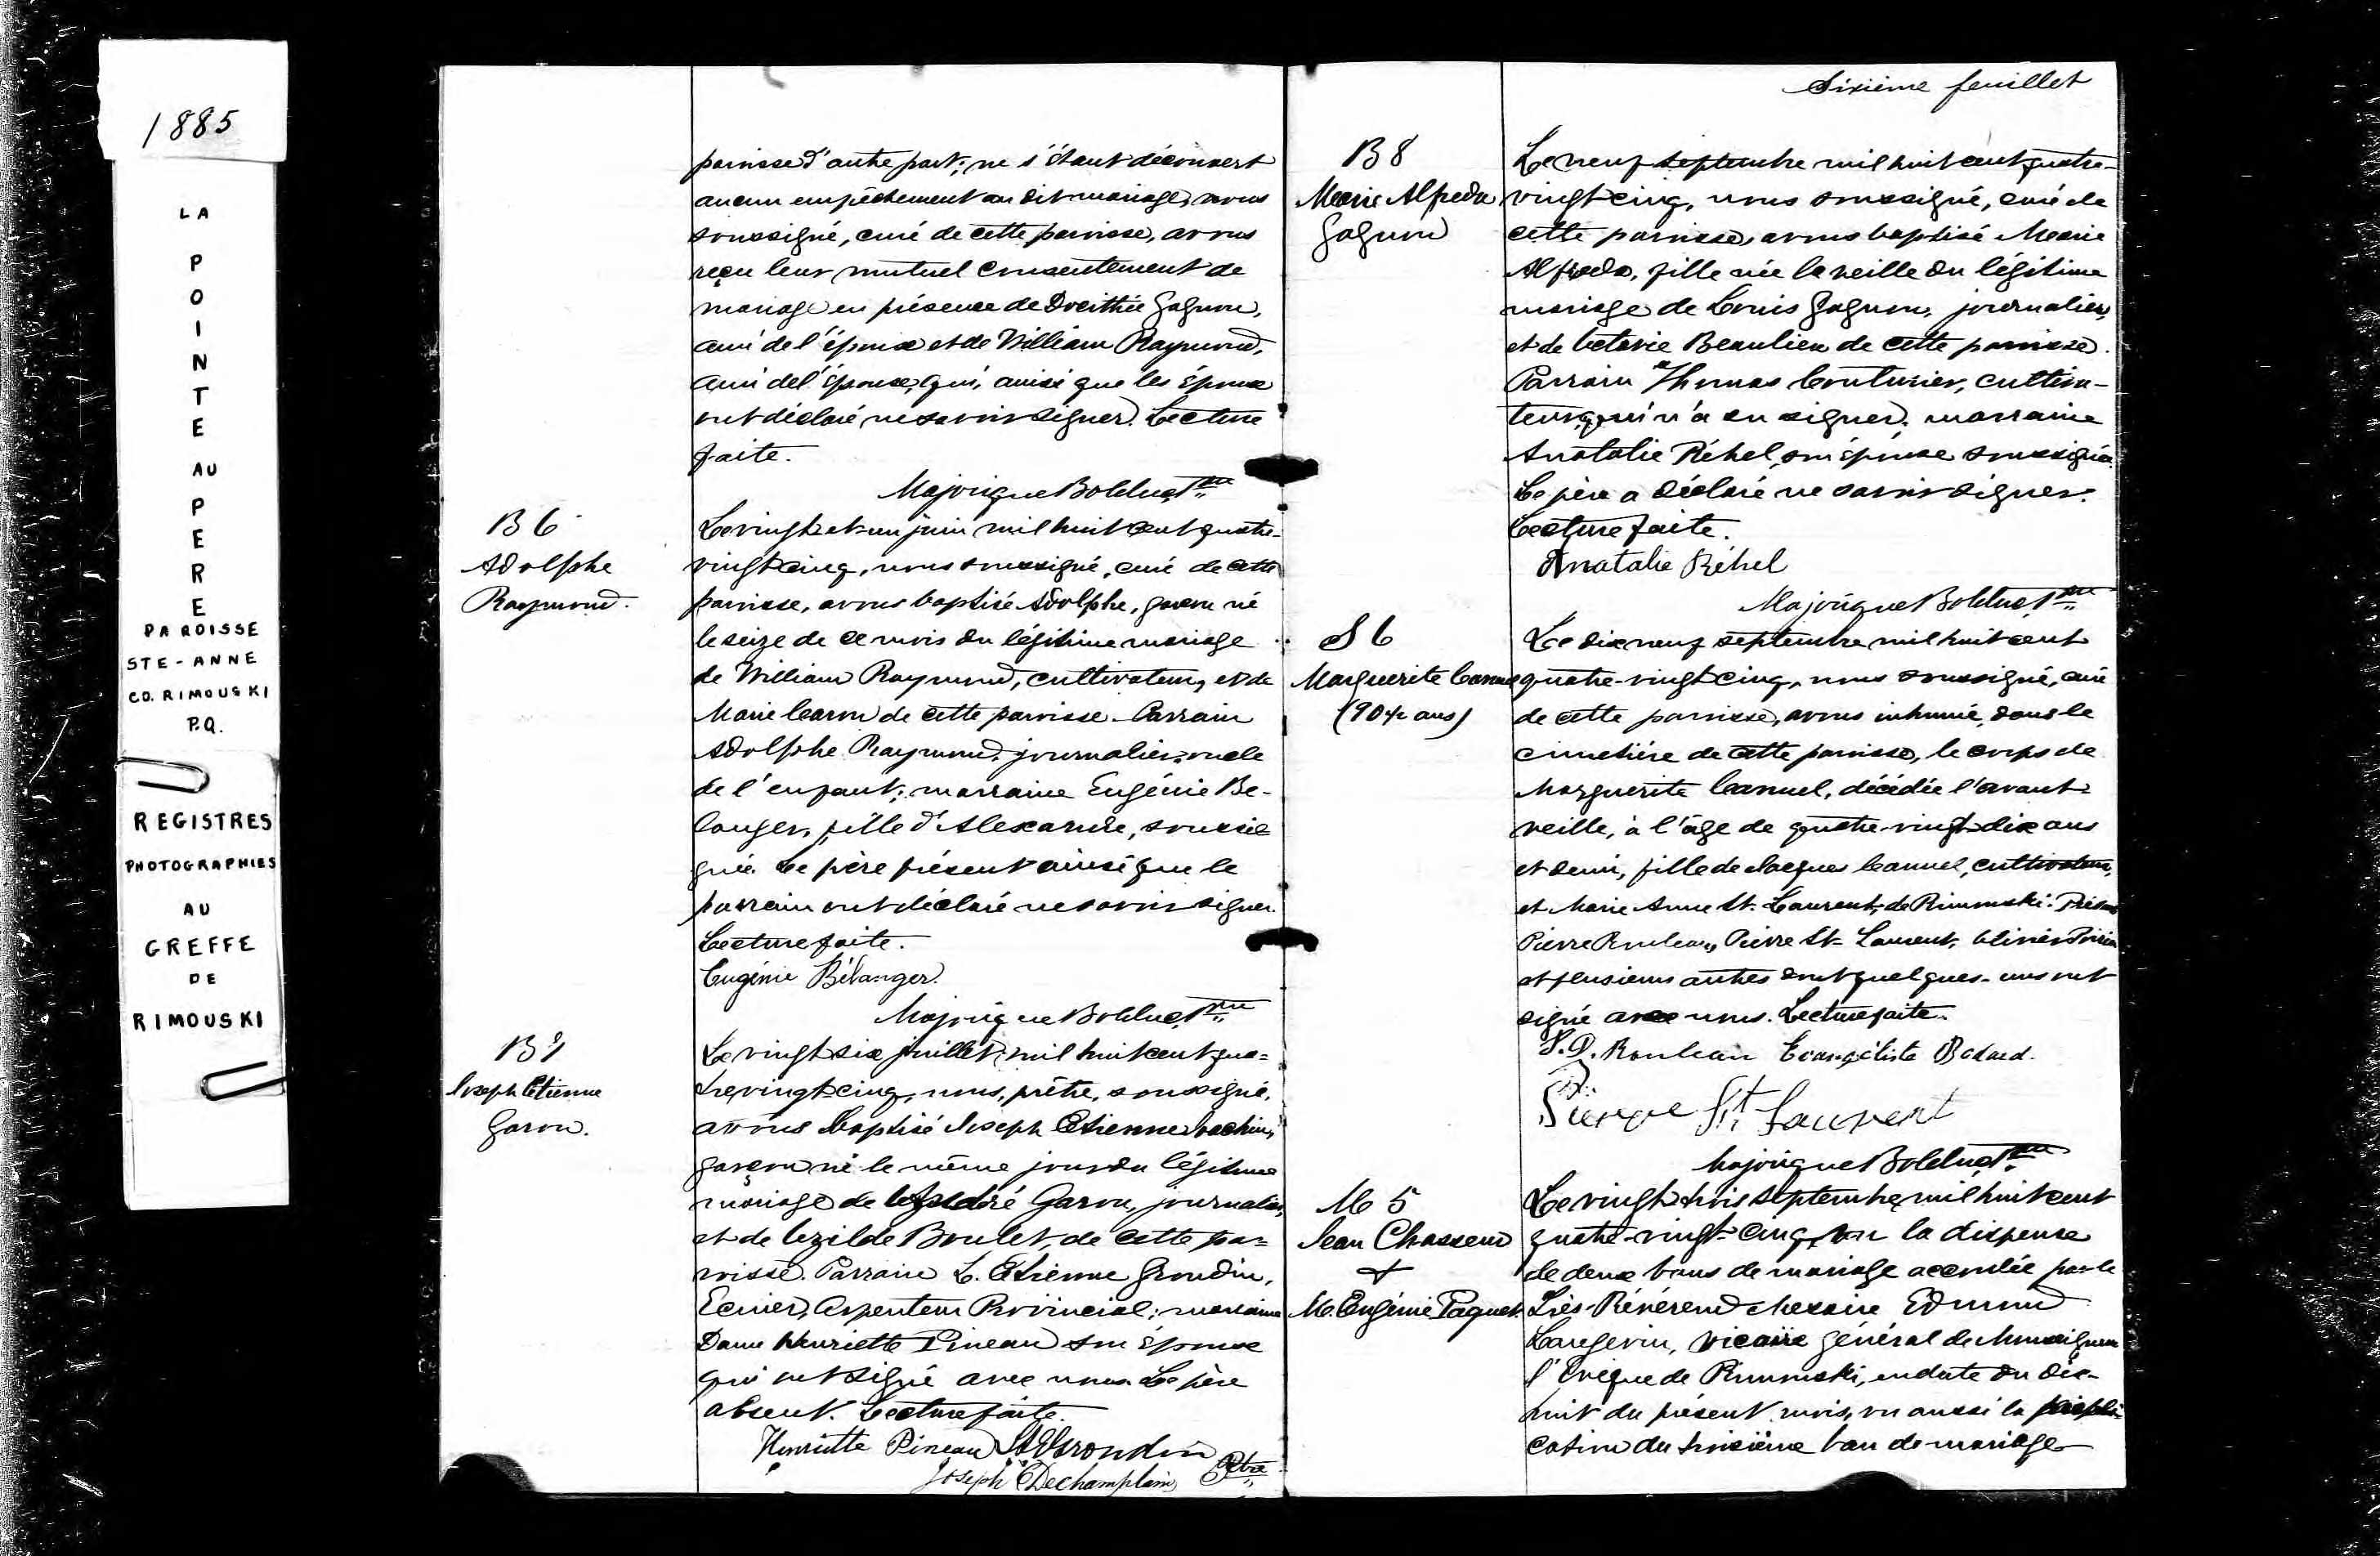 1885
LA
POINTE
AU
PERE
PAROISSE
STE-ANNE
CO. RIMOUSKI
P.Q.
REGISTRES
PHOTOGRAPHIES
AU
GREFFE
DE
RIMOUSKI
paroisse d'autre part; ne s'étant découvert
aucun empêchement au dit mariage, nous
soussigné, curé de cette paroisse, avons
reçu leur mutuel consentement de
mariage en présence de Dosithée Gagnon,
ami de l'époux et de William Raymond,
ami de l'épouse, qui, ainsi que les époux
ont déclaré ne savoir signer. Lecture
faite.
Majorique Bolduc Ptre
B 6
Adolphe
Raymond.
Le vingt et un juin mil huit cent quatre-
vingt cinq, nous soussigné, curé de cette
paroisse, avons baptisé Adolphe, garçon né
le seize de ce mois du légitime mariage
de William Raymond, cultivateur, et de
Marie Caron de cette paroisse. Parrain
Adolphe Raymond, journalier, oncle
de l'enfant; marraine Eugénie Be-
langer, fille d'Alexandre, soussi-
gnée. Le père présent ainsi que le
parrain ont déclaré ne savoir signer.
Lecture faite.
Eugénie Bélanger
Majorique Bolduc, Ptre
B 7
Joseph Etienne
Garon.
Le vingt six juillet, mil huit cent qua-
tre vingt cinq, nous, prêtre, soussigné,
avons baptisé Joseph Etienne Joachim,
garçon né le même jour du légitime
mariage de Garon, journalier,
et de Cézilde Boulet, de cette pa-
roisse. Parrain L. Etienne Grondin,
Ecuier, Arpenteur Provincial; marraine
Dame Henriette Pineau son épouse
qui ont signé avec nous. Le père
absent. Lecture faite.
Henriette Pineau Grondin
Joseph Dechamplain Ptre
Sixième feuillet
B 8
Marie Alfreda
Gagnon
Le neuf septembre mil huit cent quatre-
vingt cinq, nous soussigné, curé de
cette paroisse, avons baptisé Marie
Alfreda, fille née la veille du légitime
mariage de Louis Gagnon, journalier,
et de Octavie Beaulieu de cette paroisse.
Parrain Thomas Couturier, cultiva-
teur, qui n'a su signer; marraine
Anatalie Réhel, son épouse soussignée.
Le père a déclaré ne savoir signer.
Lecture faite.
Anatalie Réhel
Majorique Bolduc Ptre
S 6
Marguerite Canuel
(90½ ans)
Le dix neuf septembre mil huit cent
quatre-vingt cinq, nous soussigné, curé
de cette paroisse, avons inhumé, dans le
cimetière de cette paroisse, le corps de
Marguerite Canuel, décédée l'avant-
veille, à l'âge de quatre-vingt-dix ans
et demi, fille de Jacques Canuel, cultivateur,
et Marie Anne St. Laurent, de Rimouski. Présents
Pierre Rouleau, Pierre St-Laurent,
et plusieurs autres dont quelques-uns ont
signé avec nous. Lecture faite.
P. D. Rouleau Evangéliste Bédard.
Pierre St Laurent
Majorique Bolduc Ptre
M 5
Jean Chasseur
+
M. Eugénie Paquet.
Le vingt trois septembre, mil huit cent
quatre-vingt-cinq, vu la dispense
de deux bans de mariage accordée par le
Très-Révérend Messire Edmond
Langevin, vicaire général de Monseigneur
l'Evêque de Rimouski, en date du dix-
huit du présent mois, vu aussi la publi-
cation du troisième ban de mariage